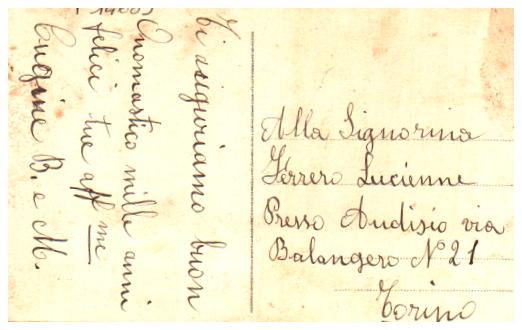 Ti auguriamo buon
Onomastico mille anni
felici tue aff me
Cugine B. e M.
Alla Signorina
Ferrero Lucienne
Presso Audisio via
Balangero N° 21
Torino